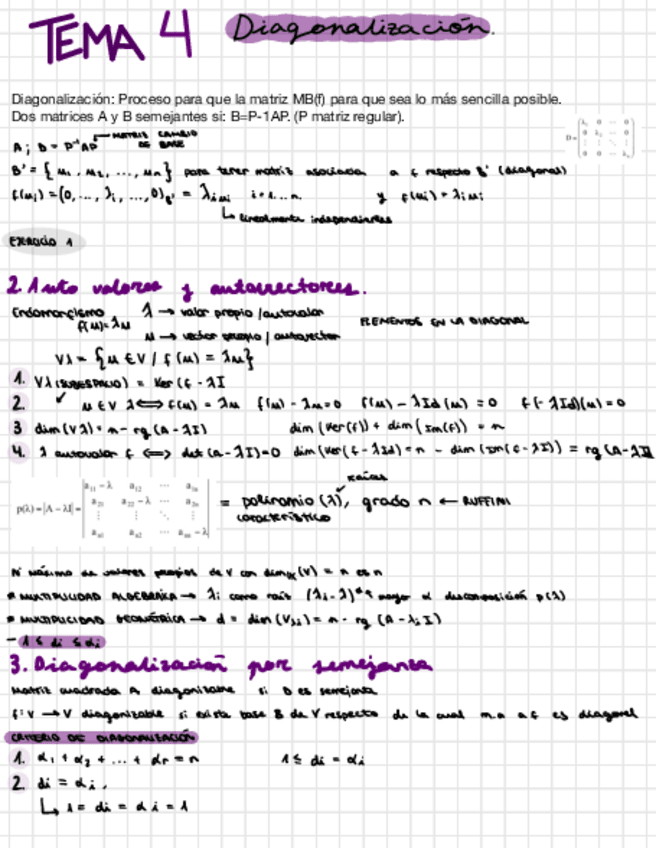 TEMA 4 Diagonalización.
Diagonalización: Proceso para que la matriz MB(f) para que sea lo más sencilla posible.
Dos matrices A y B semejantes si: B=P-1AP. (P matriz regular).
A; D = P⁻¹AP → MATRIZ CAMBIO DE BASE
B' = {u₁, u₂, ..., uₙ} para tener matriz asociada a f respecto B' (diagonal)
f(uᵢ) = (0, ..., λᵢ, ..., 0)B' = λᵢuᵢ i = 1...n. y f(uᵢ) = λᵢuᵢ
↳ linealmente independientes
EJERCICIO 1
2. Auto valores y autovectores.
Endomorfismo λ → valor propio / autovalor
f(u) = λu ELEMENTOS EN LA DIAGONAL
u → vector propio / autovector
Vλ = {u ∈ V / f(u) = λu}
1. Vλ (SUBESPACIO) = Ker (f - λI
2. u ∈ Vλ ⟺ f(u) = λu f(u) - λu = 0 f(u) - λId(u) = 0 f(-λId)(u) = 0
3 dim(Vλ) = n - rg (A - λI) dim(Ker(f)) + dim(Im(f)) = n
4. λ autovalor f ⟺ det(A - λI) = 0 dim(Ker(f - λId) = n - dim(Im(f - λI)) = rg(A - λI
raíces
p(λ) = |A - λI| = | a₁₁ - λ a₁₂ ⋯ a₁ₙ
a₂₁ a₂₂ - λ ⋯ a₂ₙ
⋮ ⋮ ⋱ ⋮
aₙ₁ aₙ₂ ⋯ aₙₙ - λ | = polinomio (λ), grado n ← RUFFINI
característico
Nº máximo de valores propios de V con dimK(V) = n es n
* MULTIPLICIDAD ALGEBRAICA → λᵢ como raíz mayor α descomposición p(λ)
* MULTIPLICIDAD GEOMÉTRICA → d = dim(Vλᵢ) = n - rg (A - λᵢI)
- 1 ≤ di ≤ αi
3. Diagonalización por semejanza
Matriz cuadrada A diagonizable si D es semejante
f: V → V diagonizable si exista base B de V respecto de la cual m.a a f es diagonal
CRITERIO DE DIAGONALIZACIÓN
1. α₁ + α₂ + ... + αr = n 1 ≤ di = αi
2. di = αi.
↳ 1 = di = αi = 1